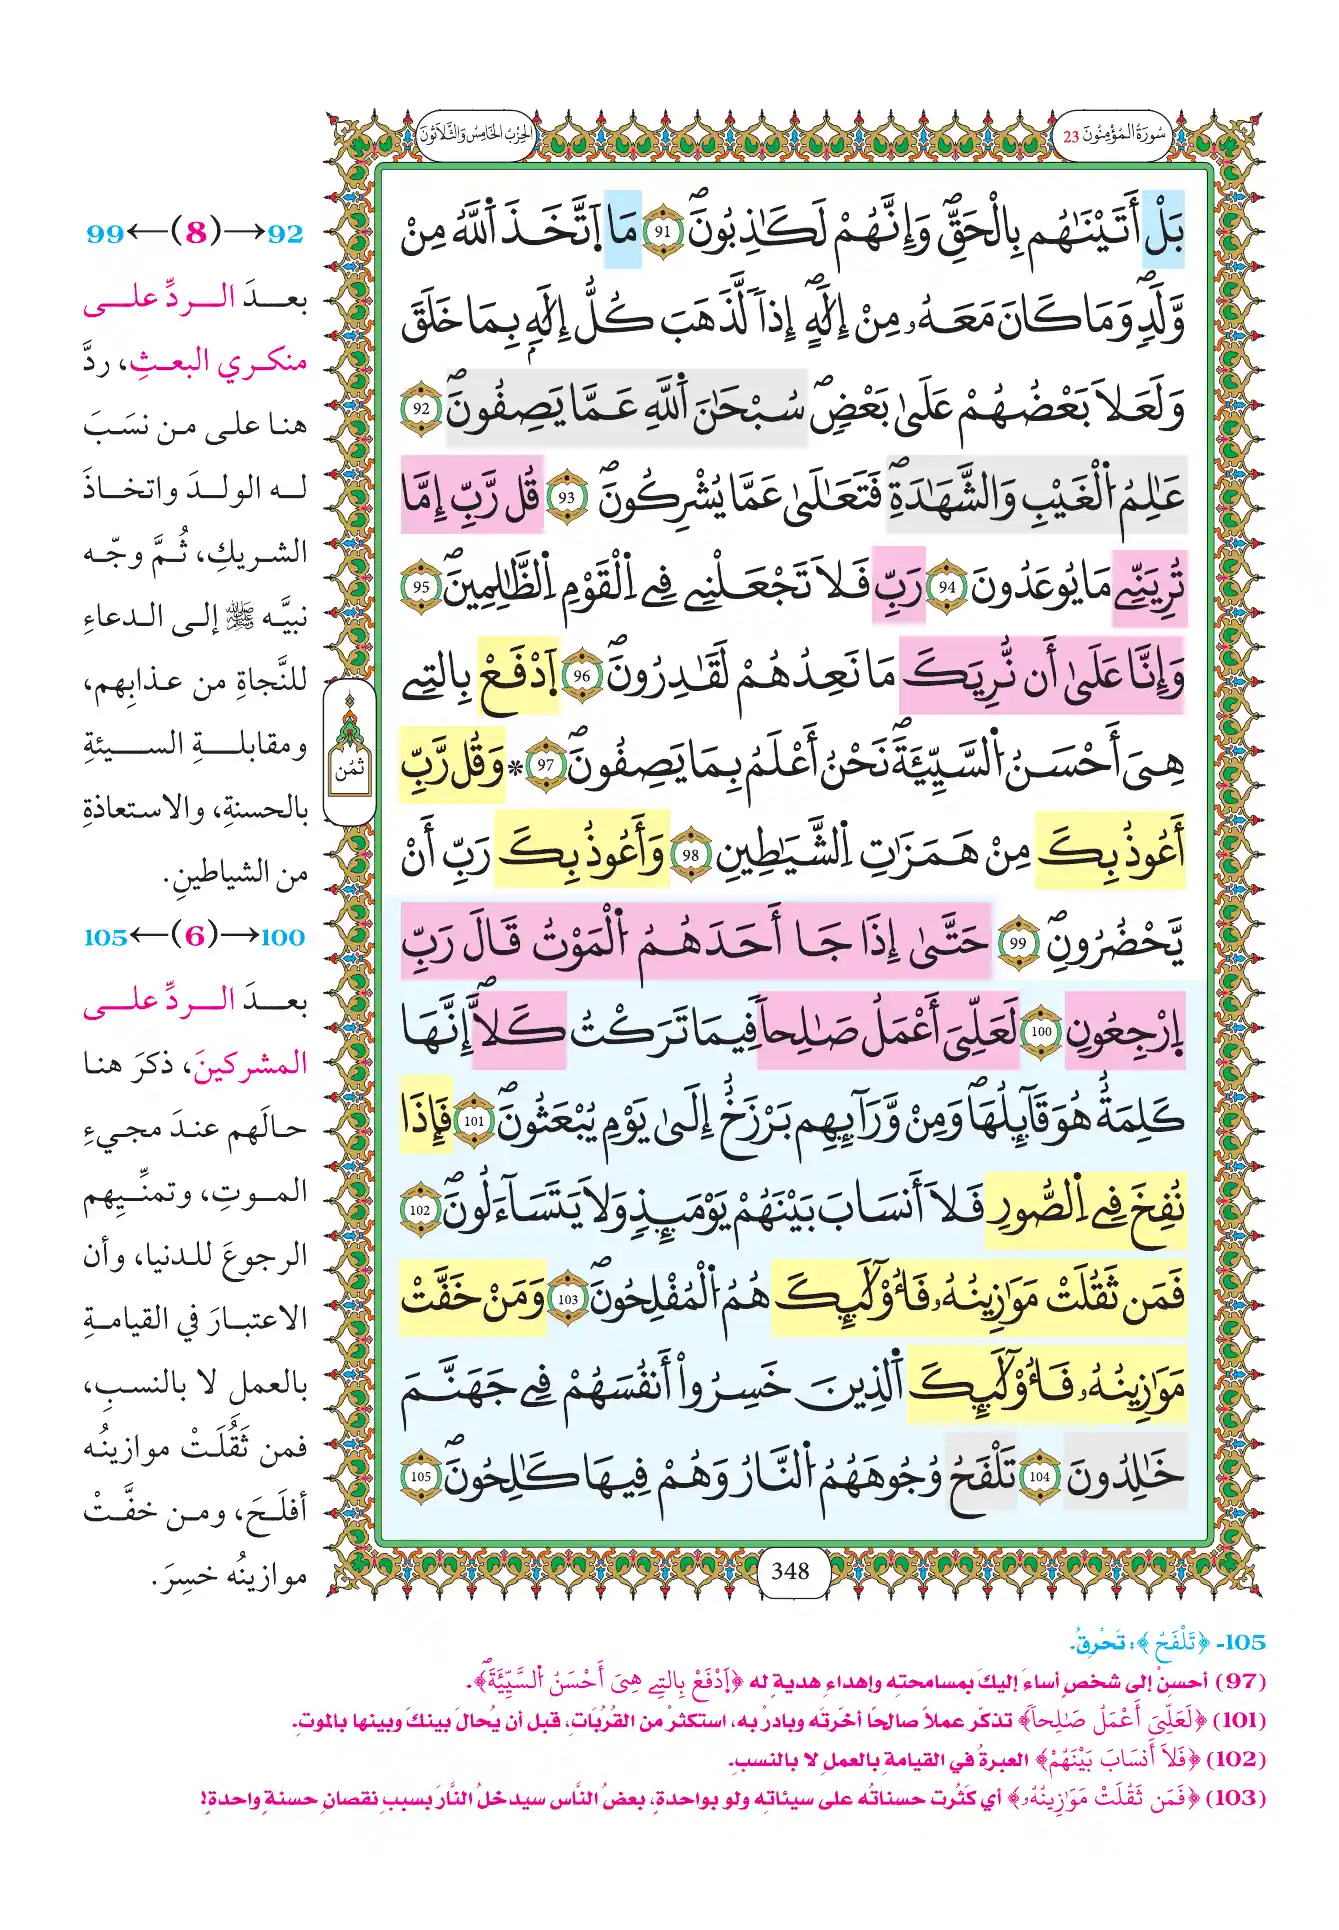 سُورَةُ الْمُؤْمِنُونَ 23
الحِزْبُ الخَامِسُ وَالثَّلَاثُونَ
بَلْ أَتَيْنَٰهُم بِالْحَقِّۖ وَإِنَّهُمْ لَكَٰذِبُونَۖ 91 مَا اَتَّخَذَ اَللَّهُ مِنْ
وَّلَدٖۖ وَمَا كَانَ مَعَهُۥ مِنْ إِلَٰهٍۖ إِذاٗ لَّذَهَبَ كُلُّ إِلَٰهِۢ بِمَا خَلَقَ
وَلَعَلَا بَعْضُهُمْ عَلَىٰ بَعْضٖۖ سُبْحَٰنَ اَللَّهِ عَمَّا يَصِفُونَۖ 92
عَٰلِمُ اُلْغَيْبِ وَالشَّهَٰدَةِۖ فَتَعَٰلَىٰ عَمَّا يُشْرِكُونَۖ 93 قُل رَّبِّ إِمَّا
تُرِيَنِّے مَا يُوعَدُونَ 94 رَبِّ فَلَا تَجْعَلْنِے فِے اِلْقَوْمِ اِلظَّٰلِمِينَۖ 95
وَإِنَّا عَلَىٰ أَن نُّرِيَكَ مَا نَعِدُهُمْ لَقَٰدِرُونَۖ 96 اَدْفَعْ بِالتِے
هِيَ أَحْسَنُ اُلسَّيِّئَةَۖ نَحْنُ أَعْلَمُ بِمَا يَصِفُونَۖ 97 * وَقُل رَّبِّ
أَعُوذُ بِكَ مِنْ هَمَزَٰتِ اِلشَّيَٰطِينِ 98 وَأَعُوذُ بِكَ رَبِّ أَنْ
يَّحْضُرُونِۖ 99 حَتَّىٰ إِذَا جَا أَحَدَهُمُ اُلْمَوْتُ قَالَ رَبِّ
اِرْجِعُونِ 100 لَعَلِّيَ أَعْمَلُ صَٰلِحاٗ فِيمَا تَرَكْتُ كَلَّاۖ إِنَّهَا
كَلِمَةٌ هُوَ قَآئِلُهَاۖ وَمِنْ وَّرَآئِهِم بَرْزَخٌ إِلَىٰ يَوْمِ يُبْعَثُونَۖ 101 فَإِذَا
نُفِخَ فِے اِلصُّورِ فَلَا أَنسَابَ بَيْنَهُمْ يَوْمَئِذٖ وَلَا يَتَسَآءَلُونَۖ 102
فَمَن ثَقُلَتْ مَوَٰزِينُهُۥ فَأُوْلَٰٓئِكَ هُمُ اُلْمُفْلِحُونَۖ 103 وَمَنْ خَفَّتْ
مَوَٰزِينُهُۥ فَأُوْلَٰٓئِكَ اَلذِينَ خَسِرُواْ أَنفُسَهُمْ فِے جَهَنَّمَ
خَٰلِدُونَ 104 تَلْفَحُ وُجُوهَهُمُ اُلنَّارُ وَهُمْ فِيهَا كَٰلِحُونَۖ 105
ثُمُن
348
92→(8)←99
بعدَ الردِّ على
منكري البعثِ، ردَّ
هنا على من نسَبَ
له الولدَ واتخاذَ
الشريكِ، ثُمَّ وجّه
نبيَّه ﷺ إلى الدعاءِ
للنَّجاةِ من عذابِهم،
ومقابلةِ السيئةِ
بالحسنةِ، والاستعاذةِ
من الشياطينِ.
100→(6)←105
بعدَ الردِّ على
المشركينَ، ذكرَ هنا
حالَهم عندَ مجيءِ
الموتِ، وتمنِّيهم
الرجوعَ للدنيا، وأن
الاعتبارَ في القيامةِ
بالعمل لا بالنسبِ،
فمن ثَقُلَتْ موازينُه
أفلَحَ، ومن خفَّتْ
موازينُه خسِرَ.
105- ﴿تَلْفَحُ﴾: تَحْرِقُ.
(97) أحسِنْ إلى شخصٍ أساءَ إليكَ بمسامحتِه وإهداءِ هديةٍ له ﴿اَدْفَعْ بِالتِے هِيَ أَحْسَنُ اُلسَّيِّئَةَۖ﴾.
(101) ﴿لَعَلِّيَ أَعْمَلُ صَٰلِحاٗ﴾ تذكّر عملاً صالحًا أخّرتَه وبادرْ به، استكثرْ من القُرُبَاتِ، قبل أن يُحالَ بينكَ وبينها بالموتِ.
(102) ﴿فَلَا أَنسَابَ بَيْنَهُمْ﴾ العبرةُ في القيامةِ بالعملِ لا بالنسبِ.
(103) ﴿فَمَن ثَقُلَتْ مَوَٰزِينُهُۥ﴾ أي كَثُرت حسناتُه على سيئاتِه ولو بواحدةٍ، بعضُ النَّاس سيدخلُ النَّارَ بسببِ نقصانِ حسنةٍ واحدةٍ!